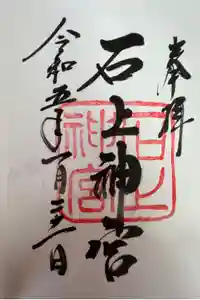 奉拝
石上神宮
令和五年一月二十一日
石上
神宮